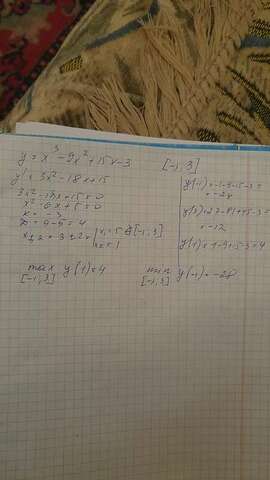 y = x³ - 9x² + 15x - 3 [-1; 3]
y' = 3x² - 18x + 15
3x² - 18x + 15 = 0
x² - 6x + 5 = 0
k = -3
D = 9 - 5 = 4
x₁,₂ = 3 ± 2 = x₁ = 5 ∉ [-1; 3]
x = 1
y(-1) = -1 - 9 - 15 - 3 =
= -28
y(3) = 27 - 81 + 45 - 3 =
= -12
y(1) = 1 - 9 + 15 - 3 = 4
max y(1) = 4
[-1; 3]
min y(-1) = -28
[-1; 3]